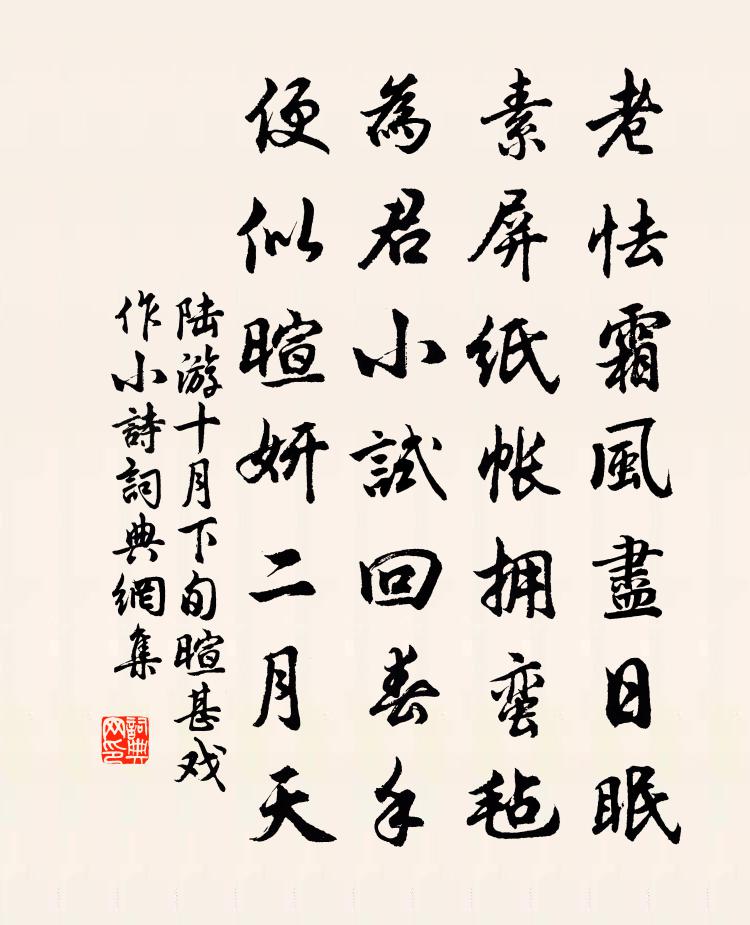 老怯霜風盡日眠
素屏紙帐拥蛮毡
為君小試回春手
便似暄妍二月天
陆游十月下旬暄甚戏
作小詩詞典網集
詞典
网印